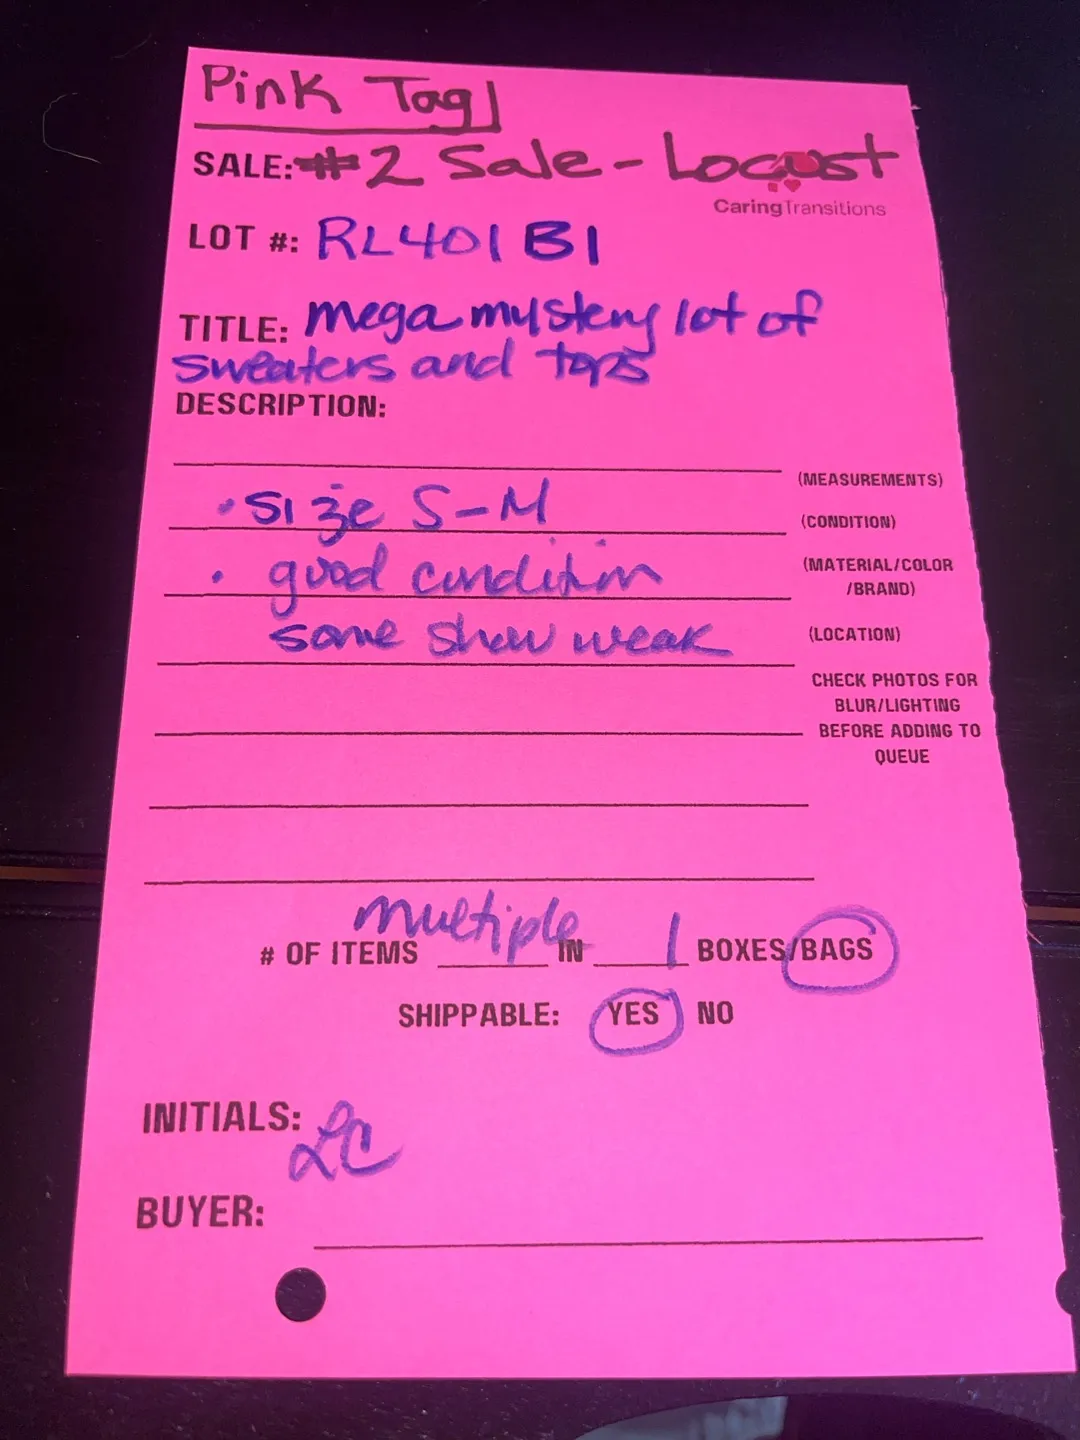 Pink Tag
SALE: #2 Sale - Locust
CaringTransitions
LOT #: RL401B1
TITLE: mega mystery lot of
sweaters and tops
DESCRIPTION:
(MEASUREMENTS)
• size S-M
(CONDITION)
• good condition
(MATERIAL/COLOR
/BRAND)
some show weak
(LOCATION)
CHECK PHOTOS FOR
BLUR/LIGHTING
BEFORE ADDING TO
QUEUE
# OF ITEMS multiple IN 1 BOXES/BAGS
SHIPPABLE: YES NO
INITIALS: LC
BUYER: